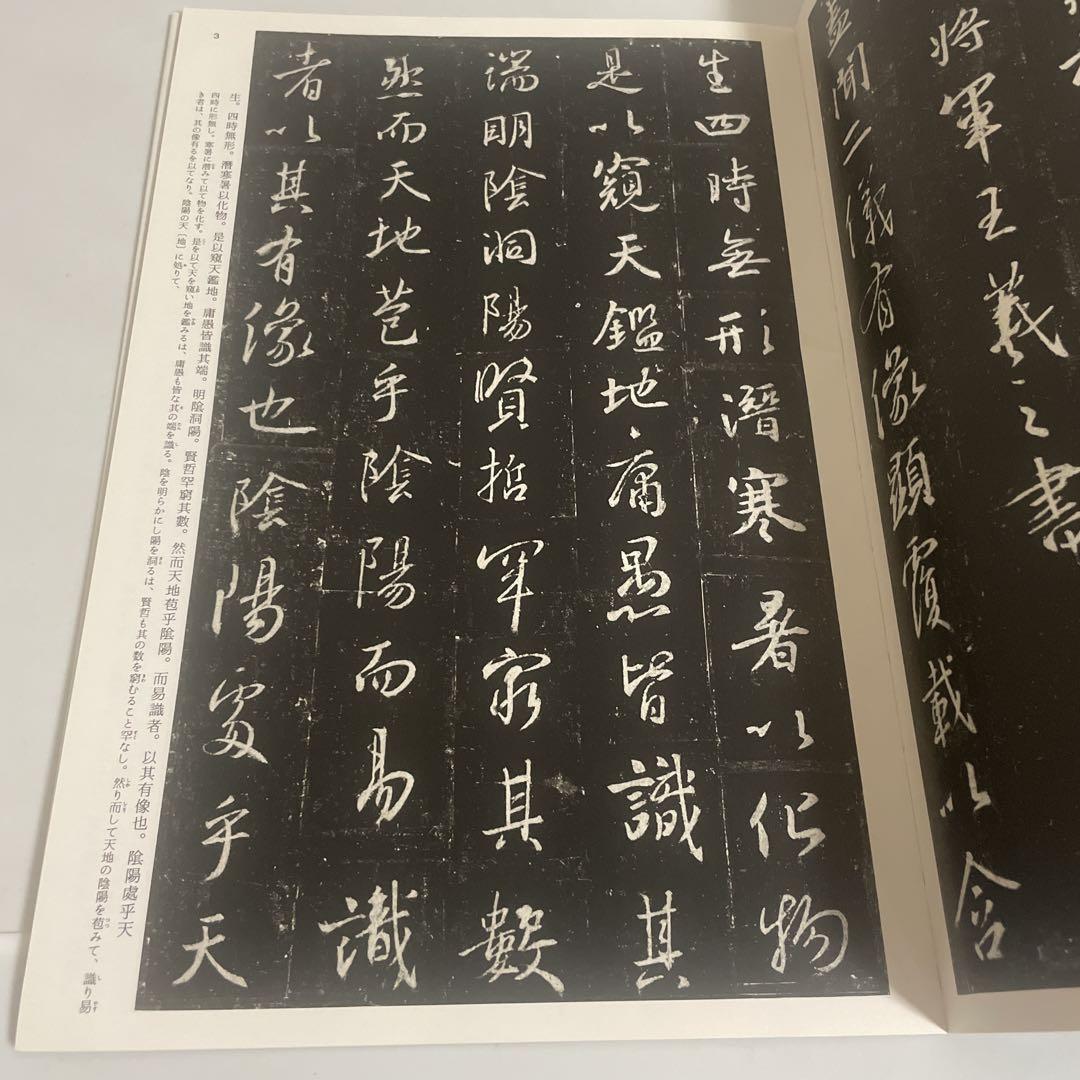 將軍王羲之書
蓋聞二儀有像顯覆載以含
生四時無形潛寒暑以化物
是以窺天鑑地庸愚皆識其
端明陰洞陽賢哲罕窮其數
然而天地苞乎陰陽而易識
者以其有像也陰陽處乎天
3
生。四時無形。潛寒暑以化物。是以窺天鑑地。庸愚皆識其端。明陰洞陽。賢哲罕窮其數。然而天地苞乎陰陽。而易識者。以其有像也。陰陽處乎天
四時に形無し。寒暑に潛みて以て物を化す。是を以て天を窺い地を鑑みるは、庸愚も皆な其の端を識る。陰を明らかにし陽を洞るは、賢哲も其の数を窮むること罕なし。然り而して天地の陰陽を苞みて、識り易
き者は、其の像有るを以てなり。陰陽の天〔地〕に処りて、